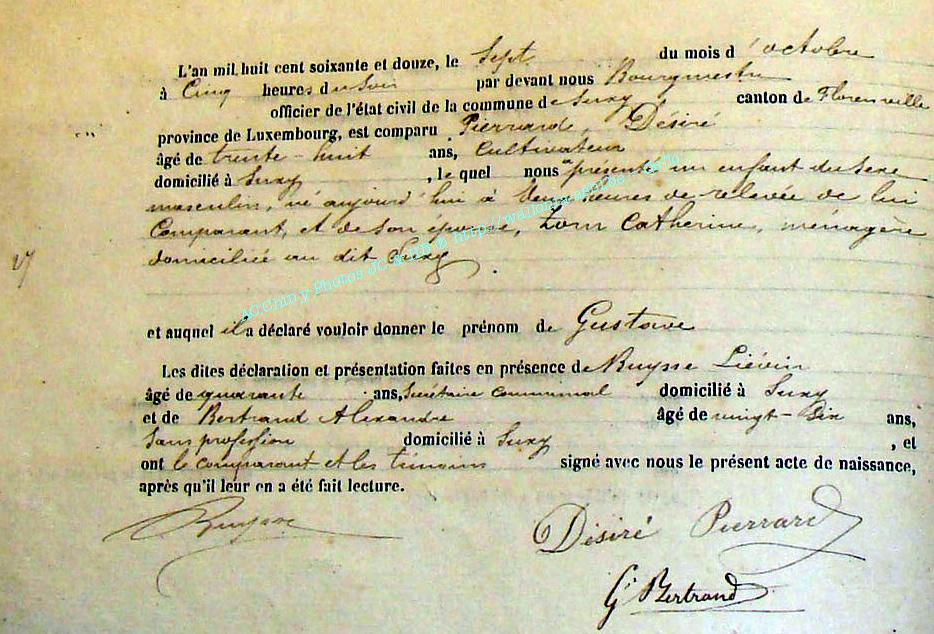 L'an mil huit cent soixante et douze, le Sept du mois d'octobre
à Cinq heures du soir par devant nous Bourgmestre
officier de l'état civil de la commune de Suxy canton de Florenville
province de Luxembourg, est comparu Pierrard, Désiré
âgé de trente-huit ans, Cultivateur
domicilié à Suxy, lequel nous a présenté un enfant du sexe
masculin, né aujourd'hui à heures de relevée de lui
Comparant, et de son épouse, Zorn Catherine, ménagère
domiciliée au dit Suxy.
et auquel il a déclaré vouloir donner le prénom de Gustave
Les dites déclaration et présentation faites en présence de Ruysse Liévin
âgé de quarante ans, Secrétaire communal domicilié à Suxy
et de Bertrand Alexandre âgé de vingt-six ans,
Sans profession domicilié à Suxy, et
ont le comparant et les témoins signé avec nous le présent acte de naissance,
après qu'il leur en a été fait lecture.
Ruysse
Désiré Pierrard
Bertrand
AC Chiny Photos JC